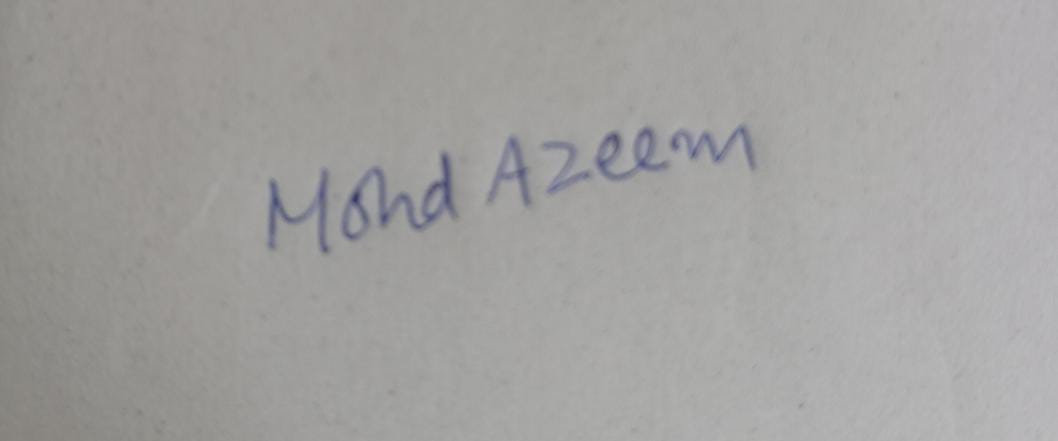 Mohd Azeem